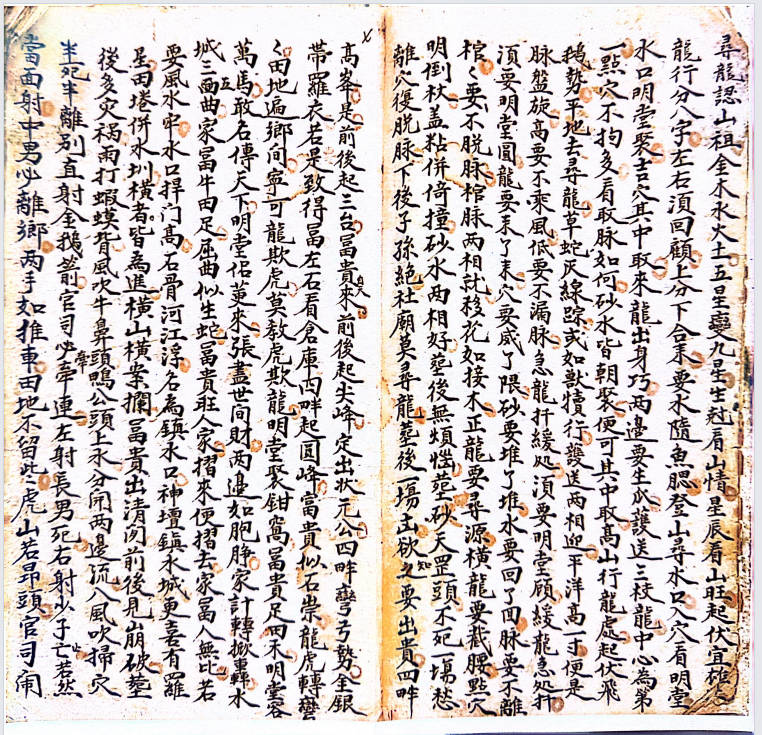 尋龍認山祖金木水火土五星變九星生尅看山情星辰看山旺起伏宜
龍行分八字左右湏回顧上分下合来要水隨魚腮登山尋水口入穴看明堂
水口明堂聚吉穴其中取來龍出身巧两邊要生瓜護送三枝龍中心為第
一點穴不拘多看取脉如何砂水皆朝聚便可其中取高山行龍處起伏飛
鵝勢平地去尋龍草蛇灰線踪或如獸犢行護送两相迎平洋高一寸便是
脉盤旋高要不乘風低要不漏脉急龍扦緩処湏要明堂顧緩龍急処扦
湏要明堂圓龍要来了来穴要威了隈砂要堆了堆水要回了回脉要不離
棺〻要不脱脉棺脉两相就移花如接木正龍要尋源橫龍要截腰點穴
明倒杖盖粘併倚撞砂水两相好塟後無煩惱塟砂天罡頭不死一塲愁
離穴復脱脉下後子孫絶社廟莫尋龍塟後一塲空欲知之要出貴四畔
高峯是前後起三台冨貴自天來前後起尖峰定出狀元公四畔彎弓勢金銀
帶羅衣若是致得冨左右看倉庫四畔起圓峰富貴似石崇龍虎轉彎
〻田地遍鄉间寧可龍欺虎莫教虎欺龍明堂聚鉗窩冨貴足田禾明堂容
萬馬敢名傳天下明堂佀萆來張盡世间財两邉如胞脝家計轉撤轟水
城三五面曲家冨牛田足屈曲似生蛇冨貴旺人家摺來便摺去家冨人無比若
要風水牢水口捍门高石骨河江浮石為鎮水口神壇鎮水城更喜有羅
星田埢併水圳橫者皆為進橫山橫案攔冨貴出清閑前後見崩破塟
後多灾禍雨打蝦蟆背風吹牛鼻頭鴨公頭上水分開两邊流八風吹掃穴
半死半離别直射金鵝箭官司必牽連左射長男死右射少子亡若然
當面射中男必離鄉两手如推車田地不留些虎山若昂頭官司鬧